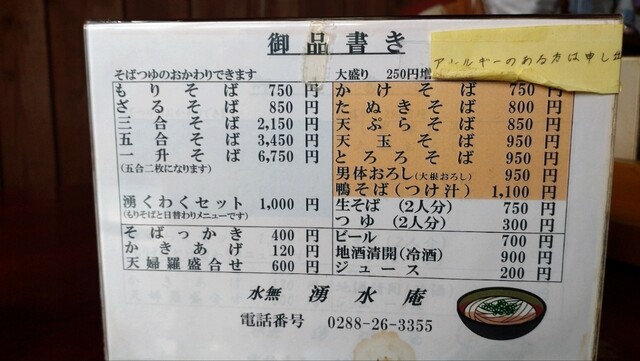 御品書き
アレルギーのある方は申し出
そばつゆのおかわりできます
もりそば 750円
ざるそば 850円
三合そば 2,150円
五合そば 3,450円
一升そば 6,750円
(五合二枚になります)
湧くわくセット 1,000円
(もりそばと日替わりメニューです)
そばっかき 400円
かきあげ 120円
天婦羅盛合せ 600円
大盛り 250円増
かけそば 750
たぬきそば 800円
天ぷらそば 850円
天玉そば 950円
とろろそば 950円
男体おろし(大根おろし) 950円
鴨そば(つけ汁) 1,100円
生そば(2人分) 750円
つゆ(2人分) 300円
ビール 700円
地酒清開(冷酒) 900円
ジュース 200円
水無 湧水庵
電話番号 0288-26-3355